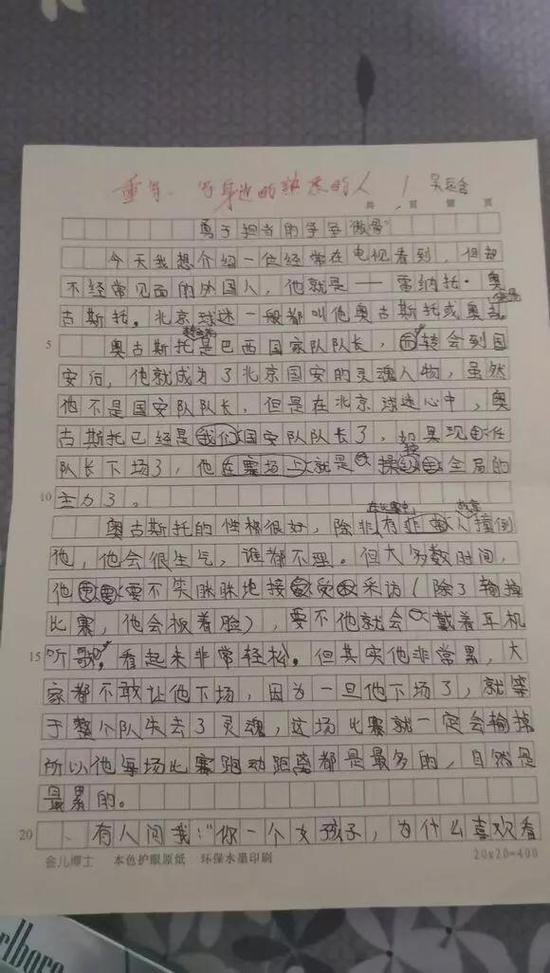 重写、写身边的熟悉的人
共 页 第 页
勇于担当的争争微骨
今天我想介绍一位经常在电视看到，但却
不经常见面的外国人，他就是——雷纳托·奥
古斯托。北京球迷一般都叫他奥古斯托或奥古。
5 奥古斯托是巴西国家队队长，转会到国
安后，他就成为了北京国安的灵魂人物，虽然
他不是国安队队长，但是在北京球迷心中，奥
古斯托已经是我们国安队队长了，如果现任
队长下场了，他在赛场上就是操全局的
10 主力了。
在比赛中
奥古斯托的性格很好，除非有人撞倒
他，他会很生气，谁都不理。但大多数时间，
他要不笑眯眯地接受采访（除了输掉
比赛，他会板着脸），要不他就会戴着耳机
15 听歌。看起来非常轻松。但其实他非常累，大
家都不敢让他下场，因为一旦他下场了，就等
于整个队失去了灵魂，这场比赛就一定会输掉
所以他每场比赛跑动距离都是最多的，自然是
最累的。
20 、有人问我：“你一个女孩子，为什么喜欢看
金儿博士 本色护眼原纸 环保水墨印刷 20x20=400
rlboro